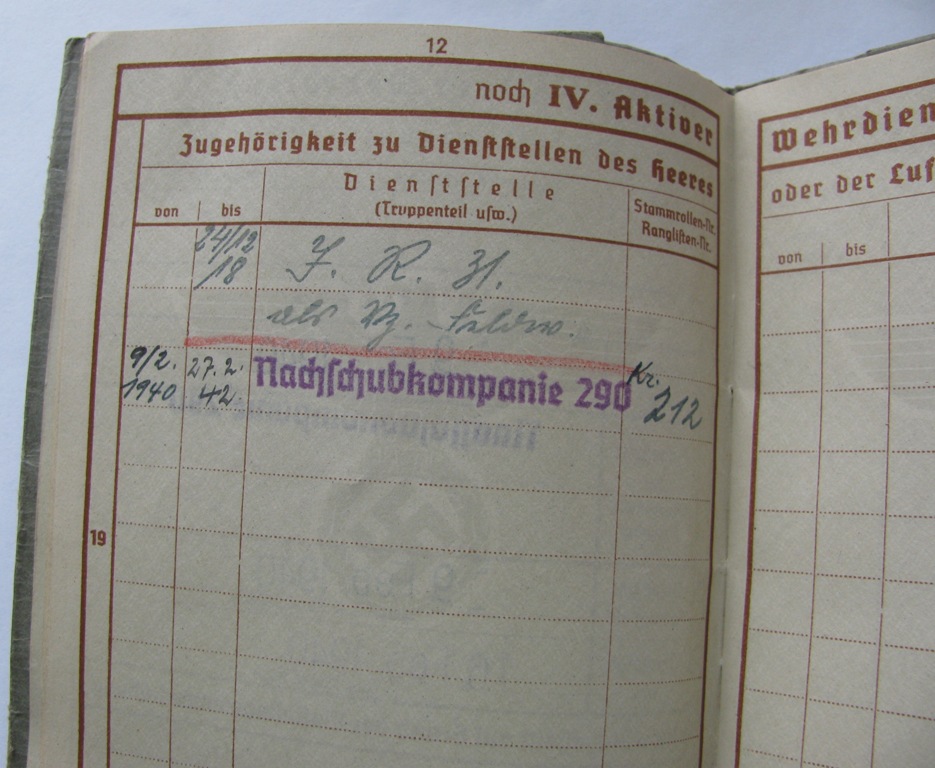 12
noch IV. Aktiver
Zugehörigkeit zu Dienststellen des Heeres
von
bis
Dienststelle
(Truppenteil usw.)
Stammrollen-Nr.
Ranglisten-Nr.
24/12
18
J. R. 31.
als Vz. Feldw.
9/2.
1940
27. 2.
42
Nachschubkompanie 290
Kr.
212
19
Wehrdien
oder der Luf
von
bis